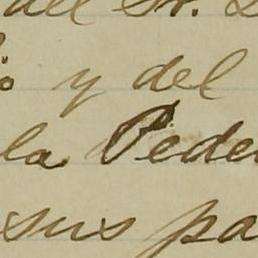 del Sr. D
y del
la Pede
sus pa